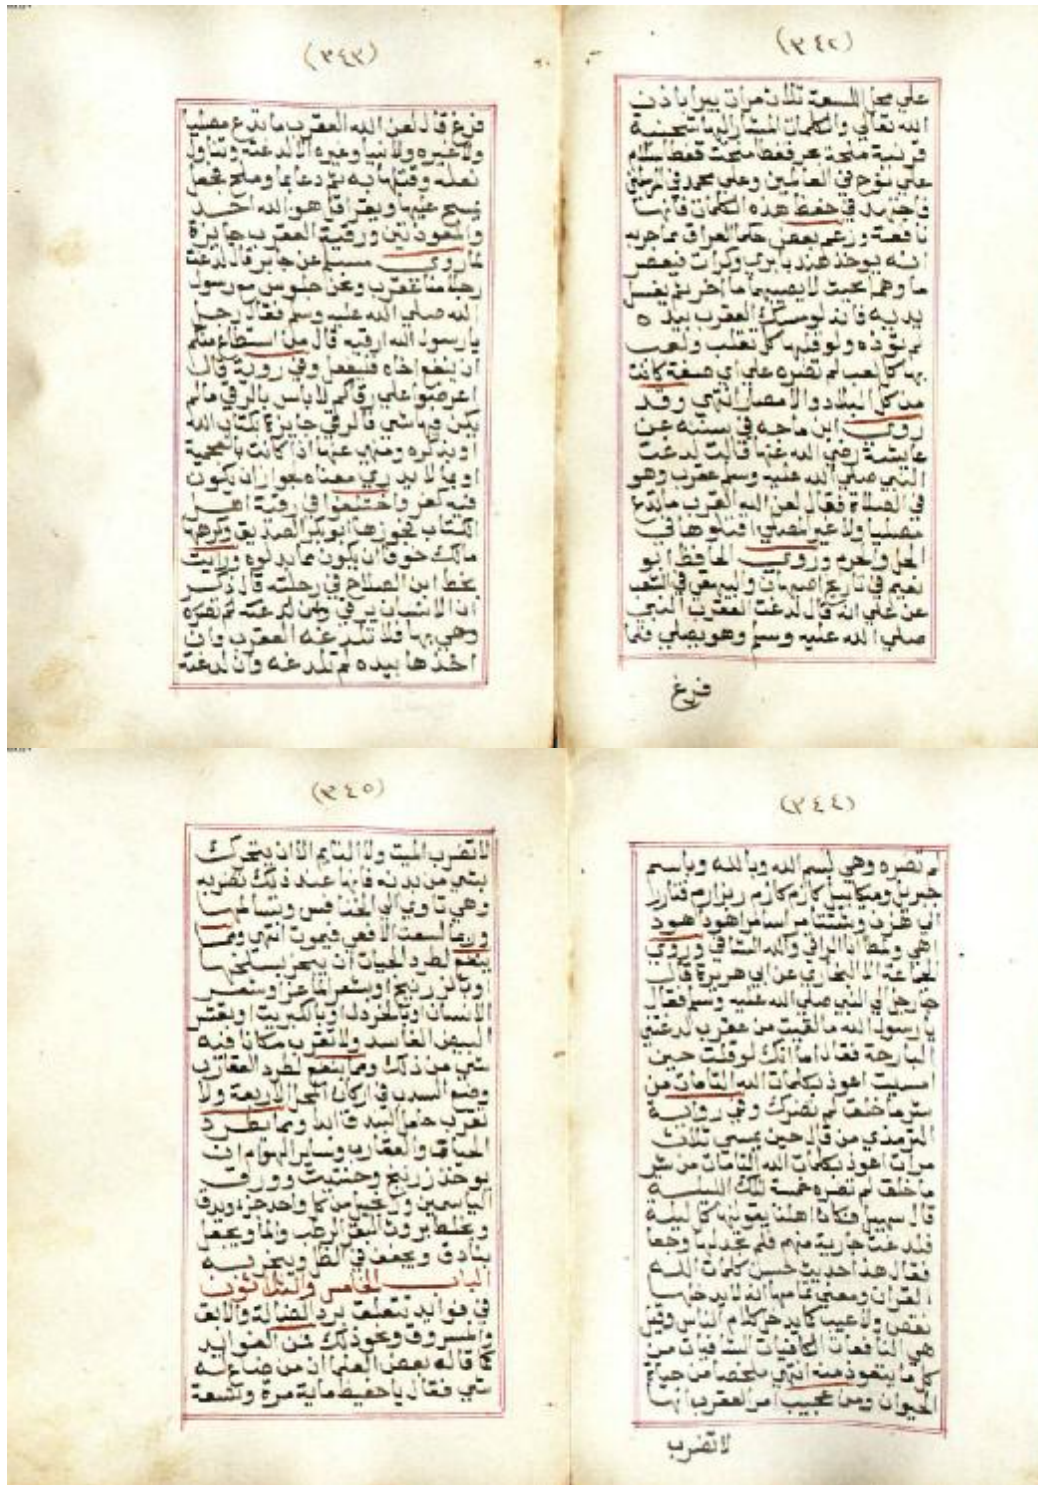 (٣٤٢)
على محل اللسعة ثلاث مرات يبرا باذن
الله تعالى والكلمات المشار اليها شجنية
قرنية ملحة بحر قفطا سلام
على نوح في العالمين وعلى محمد في المرسلين
فاجتهد في حفظ هذه الكلمات فانها
نافعة وزعم بعض حكما العراق مما جربه
انه يوخذ هندبا بري وكرات فيعصر
ماوهما بحيث لا يصيبهما ما اخر ثم يغسل
يديه فانه لو مسك العقرب بيده
لم توذه ولو قلبها كل تقلب ولعب
بها كل لعب لم تضره على اي صفة كانت
من كل البلاد والامصار انتهى وقد
روى ابن ماجه في سننه عن
عايشة رضي الله عنها قالت لدغت
النبي صلى الله عليه وسلم عقرب وهو
في الصلاة فقال لعن الله العقرب ما تدع
مصليا ولا غير مصلي اقتلوها في
الحل والحرم وروى الحافظ ابو
نعيم في تاريخ اصبهان والبيهقي في الشعب
عن علي انه قال لدغت العقرب النبي
صلى الله عليه وسلم وهو يصلي فلما
فرغ
(٣٤٣)
فرغ قال لعن الله العقرب ما تدع مصليا
ولا غيره ولا نبيا وغيره الا لدغته وتناول
نعله وقتلها به ثم دعا بما وملح فجعل
يمسح عليها ويقرا قل هو الله احد
والمعوذتين ورقية العقرب جايزة
لما روى مسلم عن جابر قال لدغت
رجلا منا عقرب ونحن جلوس مع رسول
الله صلى الله عليه وسلم فقال رجل
يارسول الله ارقيه قال من استطاع منكم
ان ينفع اخاه فليفعل وفي رواية قال
اعرضوا علي رقاكم لا باس بالرقي مالم
يكن فيها شي فالرقي جايزة بكتاب الله
او بذكره ومنهى عنها اذا كانت بالعجمية
او بما لا يدرى معناه لجواز ان يكون
فيه كفر واختلفوا في رقية اهل
الكتاب فجوزها ابو بكر الصديق وكرهها
مالك خوفا ان يكون مما بدلوه ورايت
بخط ابن الصلاح في رحلته قال ذكر
ان الانسان يرقي وان لدغته لم تضره
وهي بها فلا تلدغه العقرب وان
اخذها بيده لم تلدغه وان لدغته
(٣٤٤)
لم تضره وهي بسم الله وبالله وباسم
جبريل وميكاييل كازم كازم ريزارم فتازر
الى هزن وشتتامرا هوذا هوذا
اهي ولمظ انا الراقي والله الشافي وروى
الجماعة الا البخاري عن ابي هريرة قال
جا رجل الى النبي صلى الله عليه وسلم فقال
يارسول الله ما لقيت من عقرب لدغتني
البارحة فقال اما انك لو قلت حين
امسيت اعوذ بكلمات الله التامات من
شر ما خلق لم تضرك وفي رواية
الترمذي من قال حين يمسي ثلاث
مرات اعوذ بكلمات الله التامات من شر
ما خلق لم تضره حمة تلك الليلة
قال سهيل فكان اهلنا يقولونها كل ليلة
فلدغت جارية منهم فلم تجد لها وجعا
فقال هذا حديث حسن كلمات الله
القران ومعنى تمامها انه لا يدخلها
نقص ولا عيب كما يدخل كلام الناس وقيل
هي النافعات الكافيات الشافيات من
كل ما يتعوذ منه انتهى ملخصا من حياة
الحيوان ومن عجيب امر العقرب انها
لا تضرب
(٣٤٥)
لا تضرب الميت ولا النايم الا ان يتحرك
بشي من بدنه فانها عند ذلك تضربه
وهي تاوي الى الخنافس وتسالمها
وربما لسعت الافعى فيموت انتهى ومما
ينفع لطرد الحيات ان يبخر بسلخها
او بالزرنيخ او شعر الماعز وشعر
الانسان او بالخردل او بالكبريت او بقشر
البيض الفاسد ولا تقرب مكانا فيه
شي من ذلك ومما ينفع لطرد العقارب
وضع السدب في اركان المحل الاربعة ولا
تقرب حامل البندق ابدا ومما يطرد
الحيات والعقارب وساير الهوام ان
يوخذ زرنيخ وحنتيت وورق
الياسمين من كل واحد جزء ويدق
ويخلط بروث البقر الرطب والما ويجعل
بنادق ويجفف في الظل ويبخر به
الباب الخامس والثلاثون
في فوايد تتعلق برد الضالة والابق
والمسروق ونحو ذلك فمن الفوايد
كما قاله بعض العلما ان من ضاع له
شي فقال يا حفيظ ماية مرة وتسعة